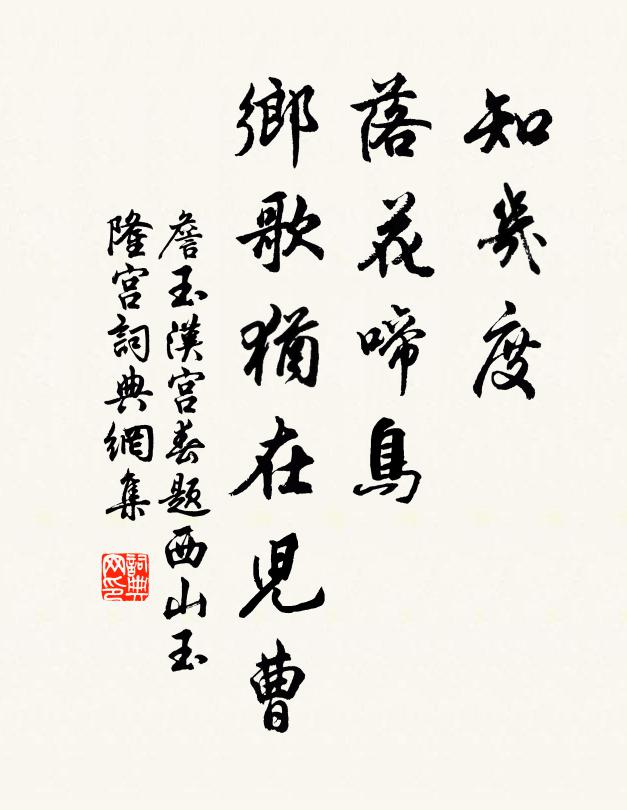 知幾度
落花啼鳥
鄉歌猶在兒曹
詹玉漢宮春題西山玉
隆宮詞典網集
詞典网印